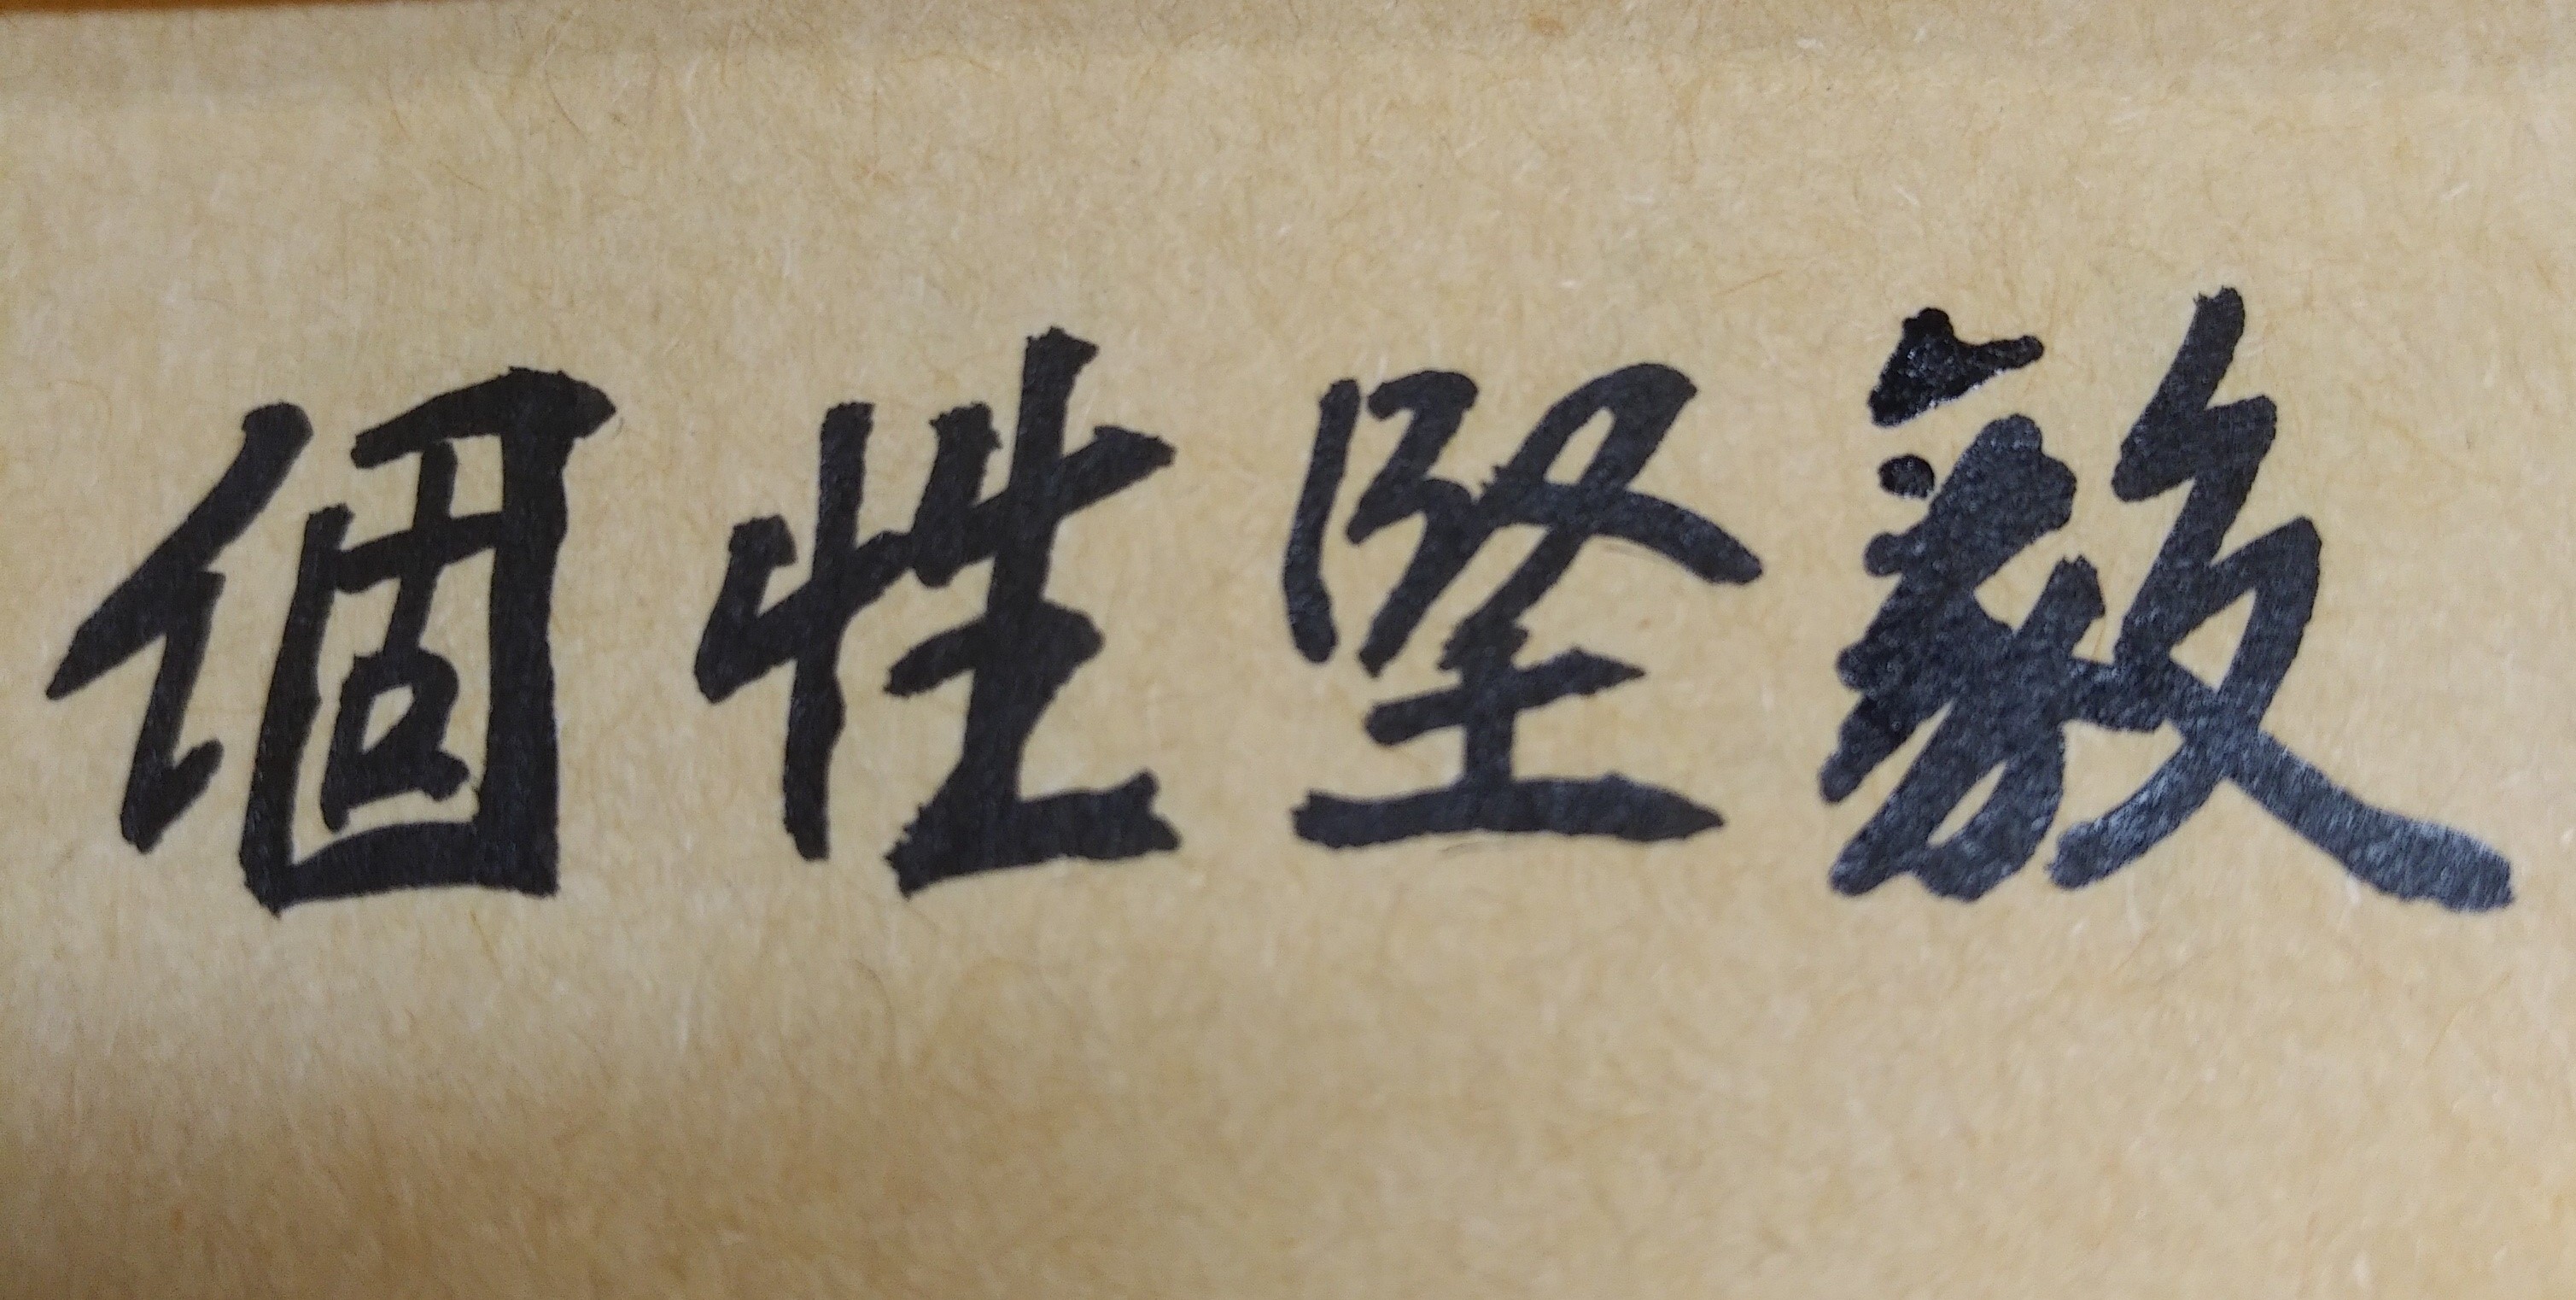 個性堅毅